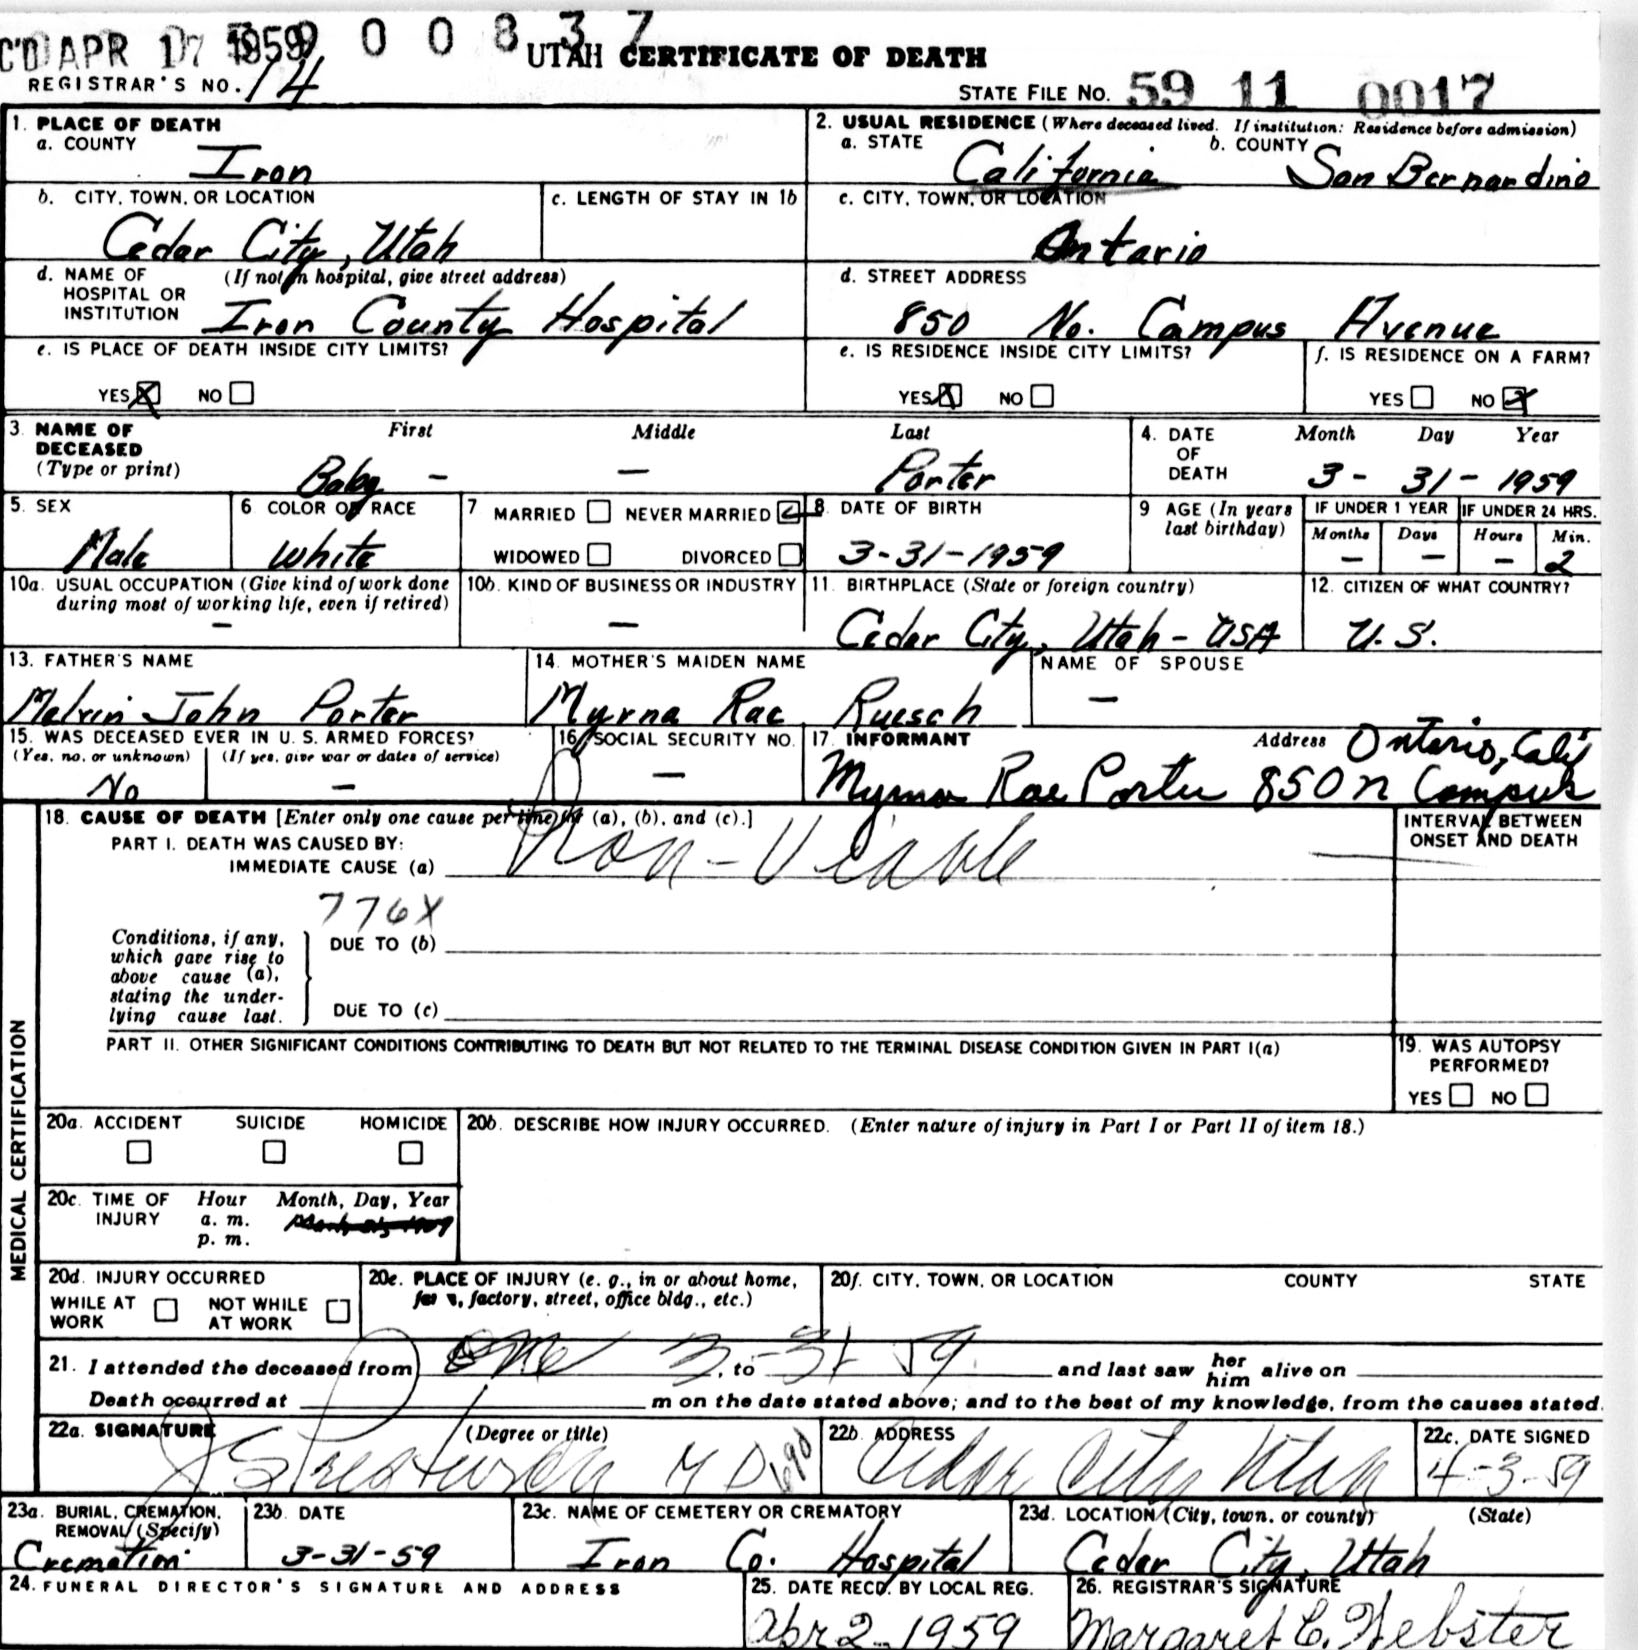 C'D APR 17 1959 0 0 8 3 7
UTAH CERTIFICATE OF DEATH
REGISTRAR'S NO. 14
STATE FILE NO. 59 11 0017
1. PLACE OF DEATH
a. COUNTY Iron
2. USUAL RESIDENCE (Where deceased lived. If institution: Residence before admission)
a. STATE California b. COUNTY San Bernardino
b. CITY, TOWN, OR LOCATION Cedar City, Utah
c. LENGTH OF STAY IN 1b
c. CITY, TOWN, OR LOCATION Ontario
d. NAME OF HOSPITAL OR INSTITUTION (If not in hospital, give street address) Iron County Hospital
d. STREET ADDRESS 850 No. Campus Avenue
e. IS PLACE OF DEATH INSIDE CITY LIMITS?
YES X NO
e. IS RESIDENCE INSIDE CITY LIMITS?
YES X NO
f. IS RESIDENCE ON A FARM?
YES NO X
3. NAME OF DECEASED (Type or print)
First Middle Last
Baby - - Porter
4. DATE OF DEATH
Month Day Year
3 - 31 - 1959
5. SEX Male
6 COLOR OR RACE White
7 MARRIED NEVER MARRIED ✓
WIDOWED DIVORCED
8. DATE OF BIRTH 3-31-1959
9 AGE (In years last birthday)
IF UNDER 1 YEAR IF UNDER 24 HRS.
Months Days Hours Min.
- - - 2
10a. USUAL OCCUPATION (Give kind of work done during most of working life, even if retired) -
10b. KIND OF BUSINESS OR INDUSTRY -
11. BIRTHPLACE (State or foreign country) Cedar City, Utah - USA
12. CITIZEN OF WHAT COUNTRY? U.S.
13. FATHER'S NAME Melvin John Porter
14. MOTHER'S MAIDEN NAME Myrna Rae Ruesch
NAME OF SPOUSE -
15. WAS DECEASED EVER IN U.S. ARMED FORCES?
(Yes, no, or unknown) (If yes, give war or dates of service)
No -
16. SOCIAL SECURITY NO. -
17. INFORMANT Address Ontario, Calif
Myrna Rae Porter 850 N Campus
MEDICAL CERTIFICATION
18. CAUSE OF DEATH [Enter only one cause per line for (a), (b), and (c).]
PART I. DEATH WAS CAUSED BY:
IMMEDIATE CAUSE (a) Non-Viable
INTERVAL BETWEEN ONSET AND DEATH
776X
Conditions, if any, which gave rise to above cause (a), stating the underlying cause last.
DUE TO (b)
DUE TO (c)
PART II. OTHER SIGNIFICANT CONDITIONS CONTRIBUTING TO DEATH BUT NOT RELATED TO THE TERMINAL DISEASE CONDITION GIVEN IN PART I(a)
19. WAS AUTOPSY PERFORMED?
YES NO
20a. ACCIDENT SUICIDE HOMICIDE
20b. DESCRIBE HOW INJURY OCCURRED. (Enter nature of injury in Part I or Part II of item 18.)
20c. TIME OF INJURY
Hour Month, Day, Year
a. m.
p. m.
20d. INJURY OCCURRED
WHILE AT WORK NOT WHILE AT WORK
20e. PLACE OF INJURY (e. g., in or about home, farm, factory, street, office bldg., etc.)
20f. CITY, TOWN, OR LOCATION COUNTY STATE
21. I attended the deceased from 3, to -31 59 and last saw her him alive on
Death occurred at m on the date stated above; and to the best of my knowledge, from the causes stated.
22a. SIGNATURE (Degree or title) M D
22b. ADDRESS Cedar City Utah
22c. DATE SIGNED 4-3-59
23a. BURIAL, CREMATION, REMOVAL (Specify) Cremation
23b. DATE 3-31-59
23c. NAME OF CEMETERY OR CREMATORY Iron Co. Hospital
23d. LOCATION (City, town, or county) (State) Cedar City, Utah
24. FUNERAL DIRECTOR'S SIGNATURE AND ADDRESS
25. DATE RECD. BY LOCAL REG. Apr 2 - 1959
26. REGISTRAR'S SIGNATURE Margaret C. Webster